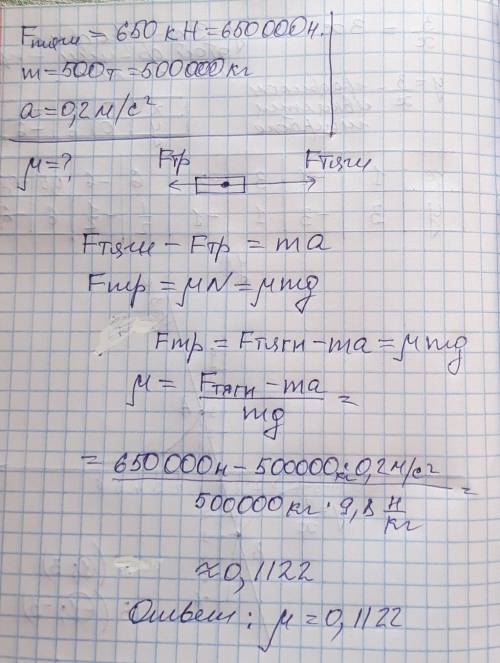 Fтяги = 650 кН = 650 000 Н.
m = 500т = 500 000 кг
a = 0,2 м/с²
μ = ?
Fтр Fтяги
Fтяги − Fтр = ma
Fтр = μN = μmg
Fтр = Fтяги − ma = μmg
μ = (Fтяги − ma)/(mg) =
= (650 000 н − 500000 кг · 0,2 м/с²)/(500 000 кг · 9,8 н/кг) =
≈ 0,1122
Ответ: μ = 0,1122